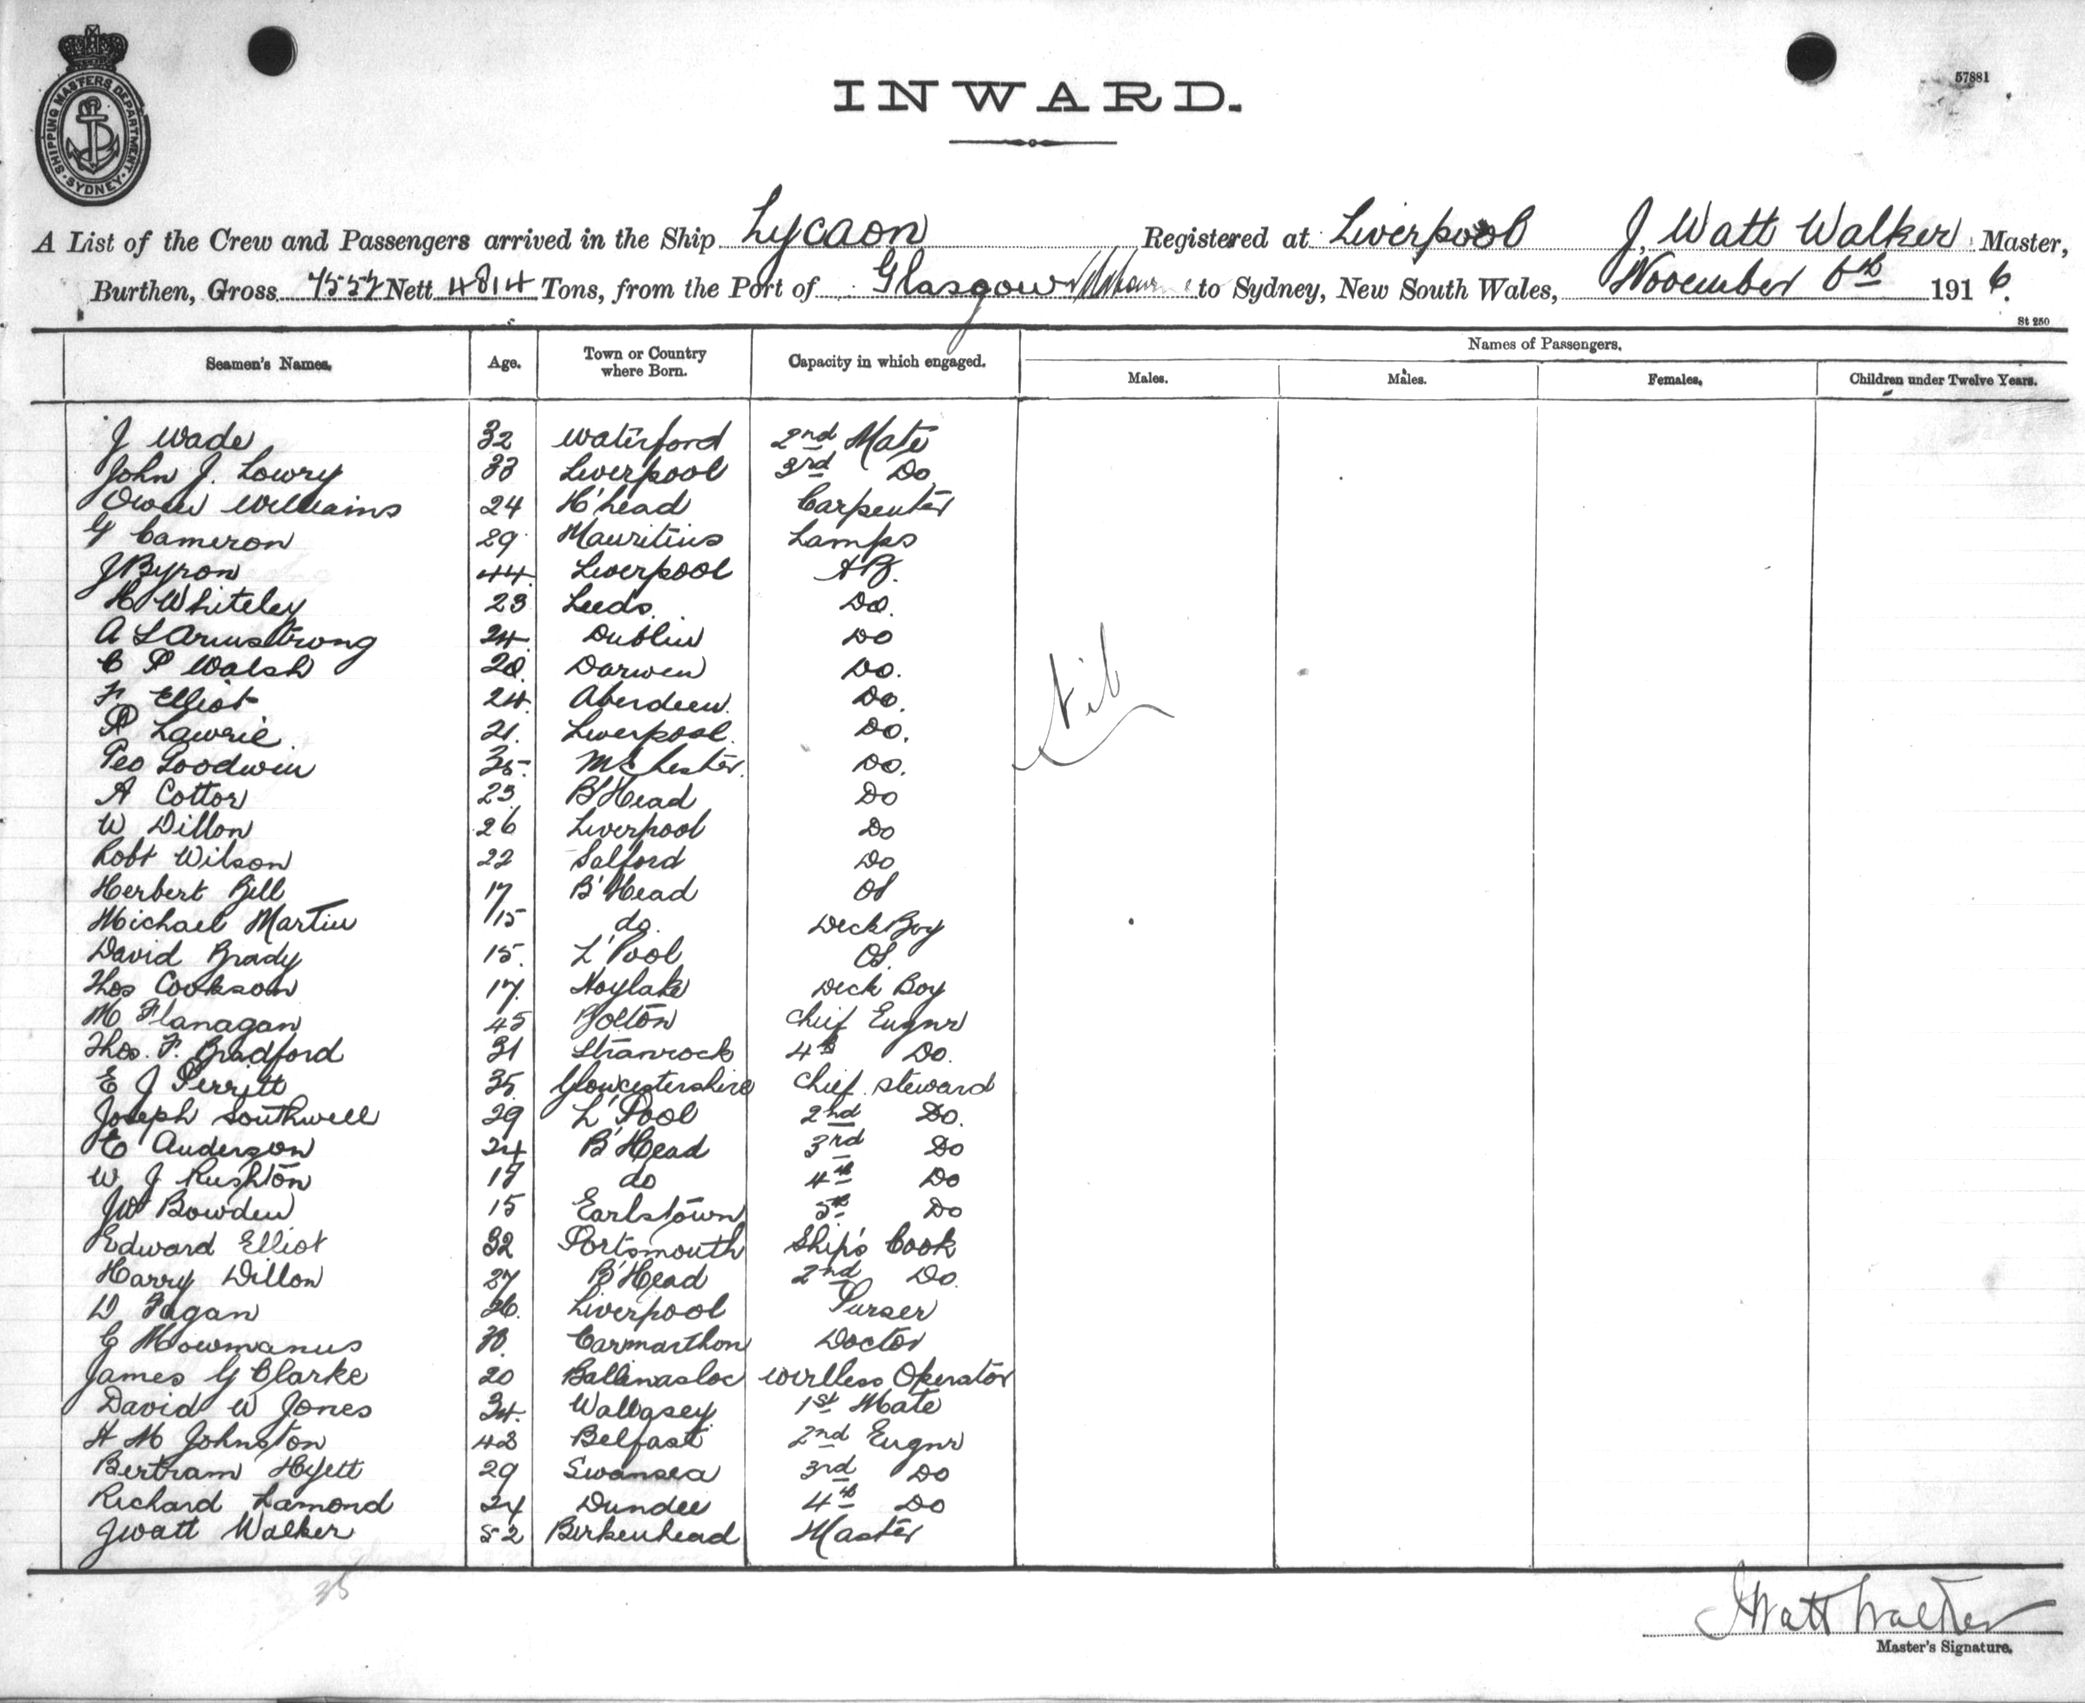 SHIPPING MASTERS DEPARTMENT. SYDNEY
57881
INWARD.
A List of the Crew and Passengers arrived in the Ship Lycaon Registered at Liverpool J. Watt Walker Master,
Burthen, Gross 7552 Nett 4814 Tons, from the Port of Glasgow to Sydney, New South Wales, November 6th 1916.
St 250
Seamen's Names. Age. Town or Country where Born. Capacity in which engaged. Names of Passengers.
Males. Males. Females. Children under Twelve Years.
J Wade 32 Waterford 2nd Mate
John J. Lowry 33 Liverpool 3rd Do
Owen Williams 24 H'head Carpenter
G Cameron 29 Mauritius Lamps
J Byron 44 Liverpool AB.
H Whiteley 23 Leeds. Do.
A L Armstrong 24 Dublin Do
C P Walsh 20 Darwen Do.
F. Elliot 24 Aberdeen. Do.
P Lawrie 21. Liverpool. Do.
Geo Goodwin 35. McChester. Do.
A Cottor 23 B'Head Do
W Dillon 26 Liverpool Do
Robt Wilson 22 Salford Do
Herbert Bell 17 B'Head OS
Michael Martin 15 do. Deck Boy
David Brady 15. L'Pool OS.
Thos Cookson 17. Hoylake Deck Boy
M Flanagan 45 Bolton Chief Engnr
Thos. F. Bradford 31 Stranrock 4th Do.
E J Perritt 35 Gloucestershire Chief Steward
Joseph Southwell 29 L'Pool 2nd Do.
E Anderson 24 B'Head 3rd Do
W J Rushton 17 do 4th Do
JW Bowden 15 Earlstown 5th Do
Edward Elliot 32 Portsmouth Ship's Cook
Harry Dillon 27 B'Head 2nd Do.
D Fagan 26. Liverpool Purser
G Mowmanus Carmarthon Doctor
James G Clarke 20 Ballinasloe Wirlless Operator
David W Jones 34. Wallasey 1st Mate
H M Johnston 42 Belfast 2nd Engnr
Bertram Hyett 29 Swansea 3rd Do
Richard Lamond 24 Dundee 4th Do
J Watt Walker 52 Birkenhead Master
Nil
35
J Watt Walker
Master's Signature.